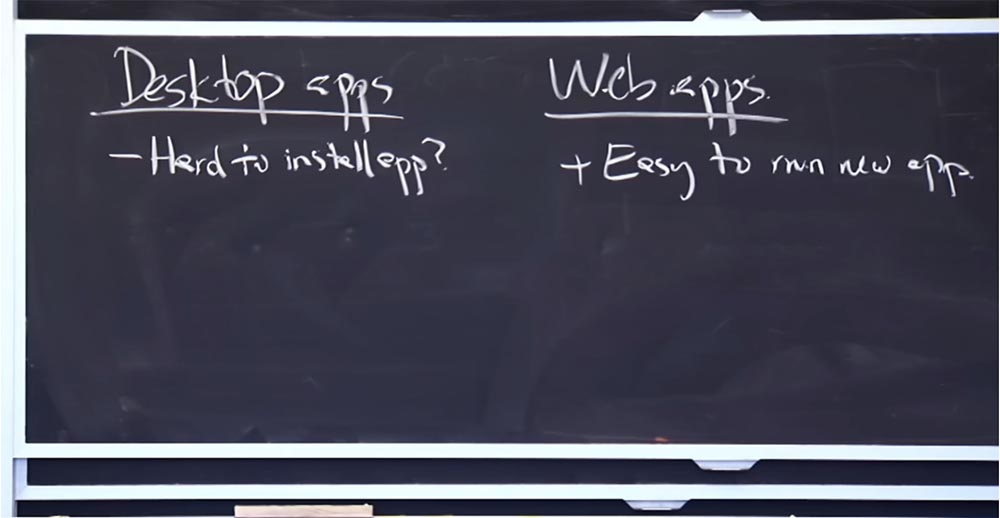 Desktop apps
- Hard to install app?
Web apps.
+ Easy to run new app.